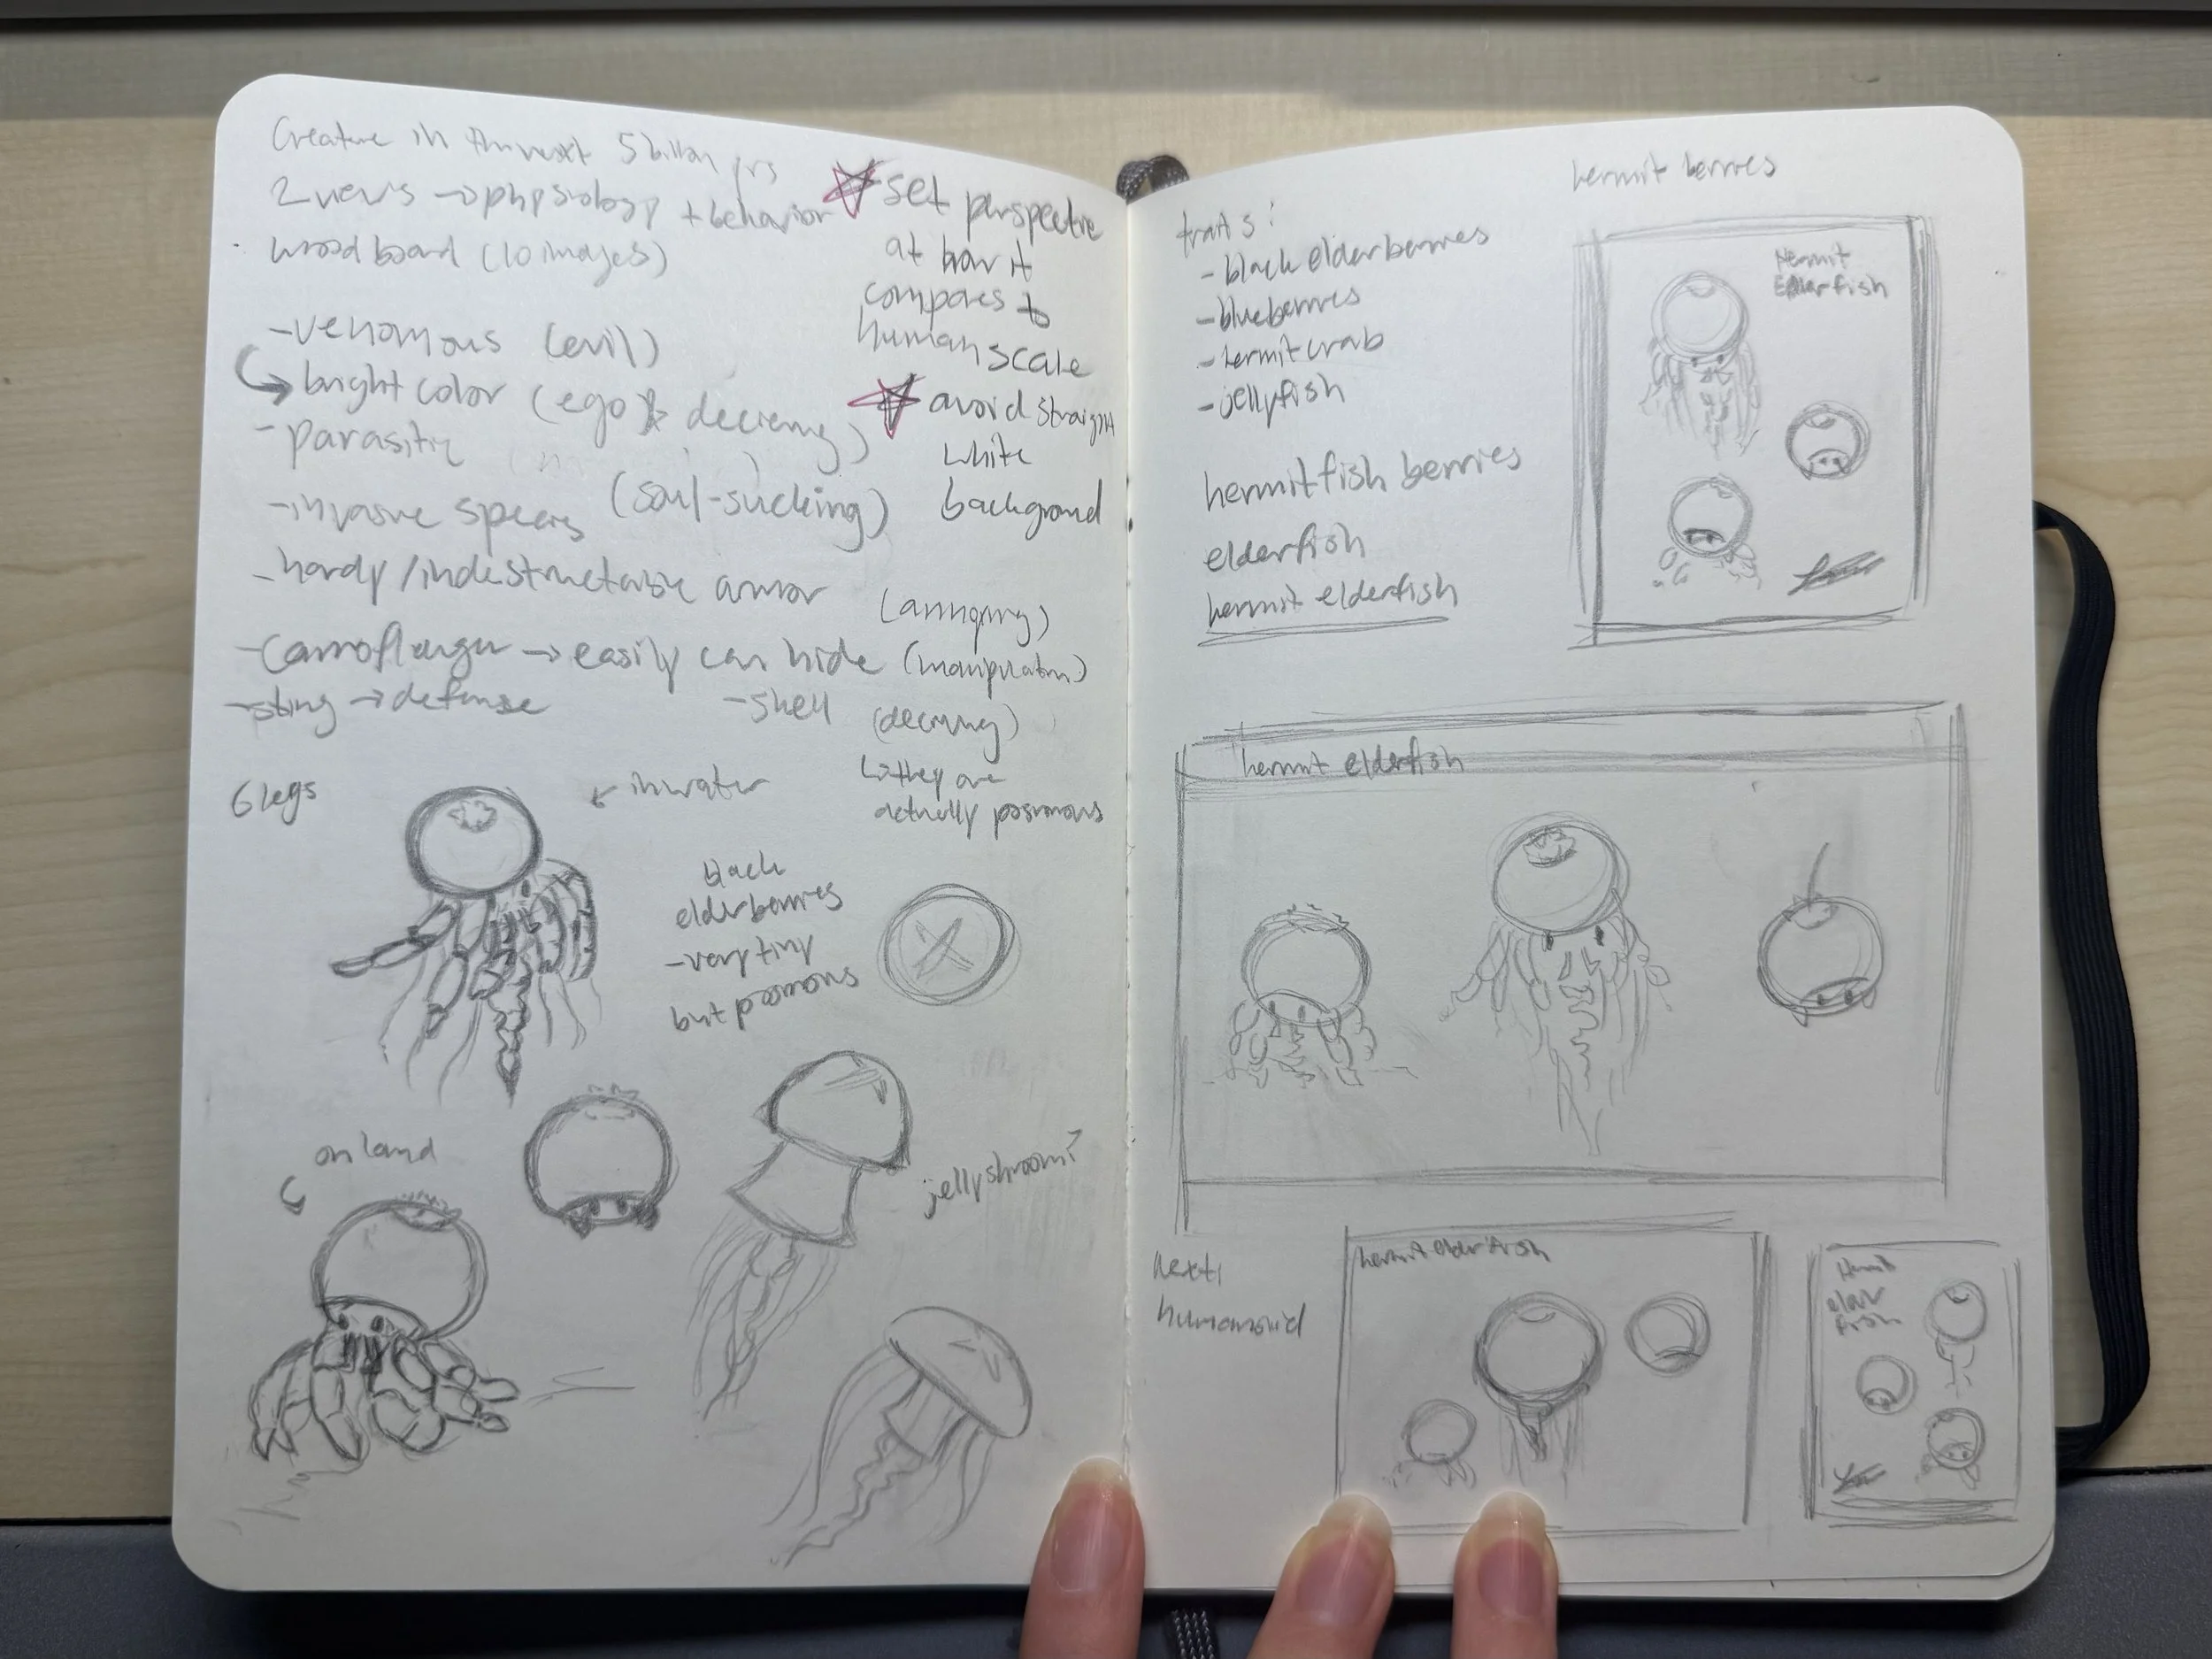 Creature in the next 5 billion yrs
2 views → physiology + behavior
mood board (10 images)
- venomous (evil)
↳ bright color (ego &
- parasitic
- invasive species (soul-sucking)
- hardy / indestructable armor
(annoying)
→ easily can hide
- sting → defense
- shell
↳ they are
actually
☆ set perspective
at how it
compares to
human scale
☆ avoid straight
white
background
6 legs
← in water
black
elderberries
- very tiny
but
on land
jellyshroom?
hermit berries
traits:
- black elderberries
- blueberries
- hermit crab
- jellyfish
hermitfish berries
elderfish
hermit elderfish
Hermit
Elderfish
hermit elderfish
next:
humanoid
hermit elderfish
Hermit
elder
fish